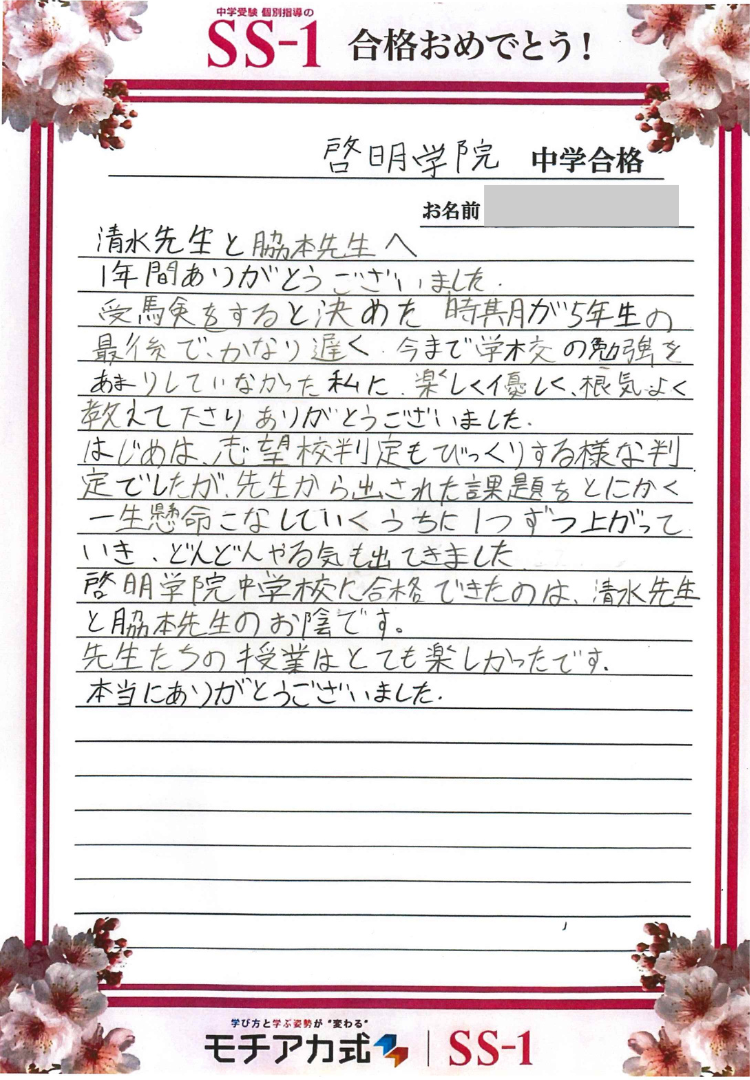 中学受験 個別指導の
SS-1 合格おめでとう!
啓明学院 中学合格
お名前
清水先生と脇本先生へ
1年間ありがとうございました.
受験をすると決めた 時期が5年生の
最後で、かなり遅く、今まで学校の勉強を
あまりしていなかった私に、楽しく優しく、根気よく
教えて下さりありがとうございました.
はじめは、志望校判定もびっくりする様な判
定でしたが、先生から出された課題をとにかく
一生懸命こなしていくうちに1つずつ上がって
いき、どんどんやる気も出てきました
啓明学院中学校に合格できたのは、清水先生
と脇本先生のお陰です。
先生たちの授業はとても楽しかったです.
本当にありがとうございました.
学び方と学ぶ姿勢が“変わる”
モチアカ式 | SS-1